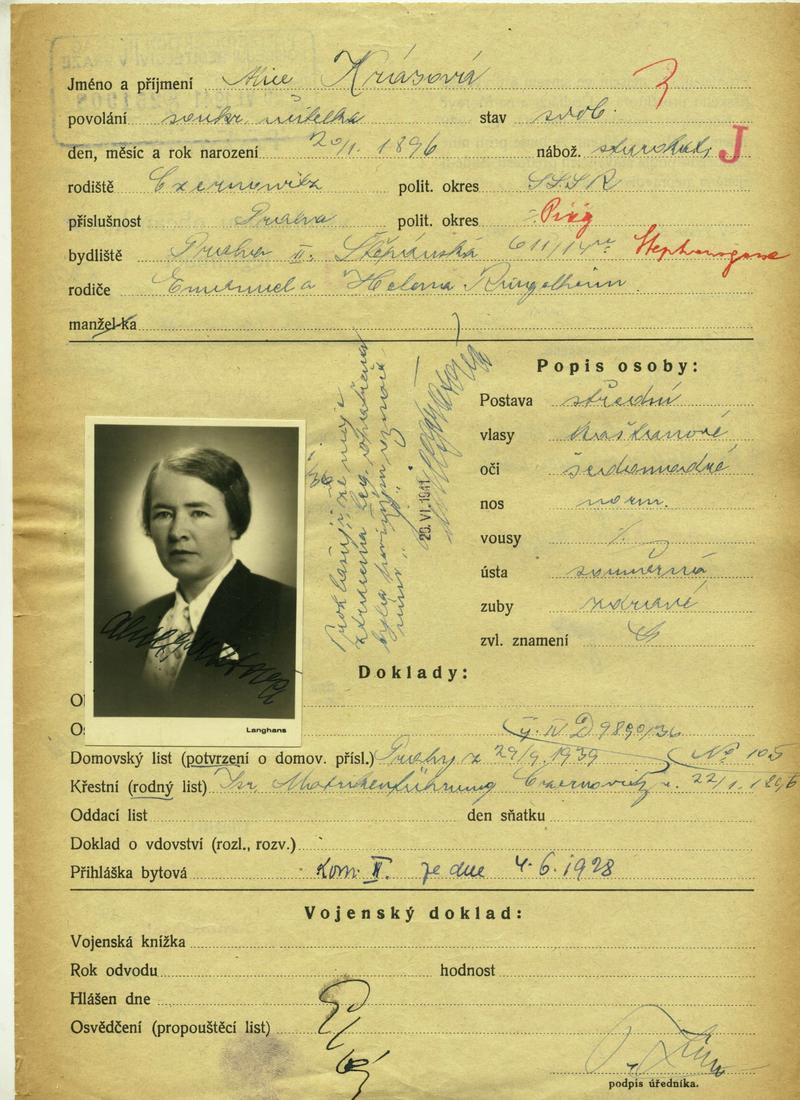 Jméno a příjmení Alice Krásová
povolání soukr učitelka stav svob.
den, měsíc a rok narození 20/1. 1896 nábož. starokat. J
rodiště Czernowitz polit. okres SSSR
příslušnost Praha polit. okres Prag
bydliště Praha II. Štěpánská 611/14 Stephansgasse
rodiče Emanuel a Helena Ringelheim
manžel-ka
Popis osoby:
Postava střední
vlasy kaštanové
oči šedomodré
nos norm.
vousy
ústa souměrná
zuby zdravé
zvl. znamení
Prohlašuji, že nejsem
26. VI. 1941
Langhans
Doklady:
Domovský list (potvrzení o domov. přísl.) Prahy z 29/9. 1939 No 105
č. IV D 9890/36
Křestní (rodný list) Isr. Matrikenführung Czernowitz z. 22/1. 1896
Oddací list den sňatku
Doklad o vdovství (rozl., rozv.)
Přihláška bytová Kom. II. ze dne 4. 6. 1928
Vojenský doklad:
Vojenská knížka
Rok odvodu hodnost
Hlášen dne
Osvědčení (propouštěcí list)
podpis úředníka.